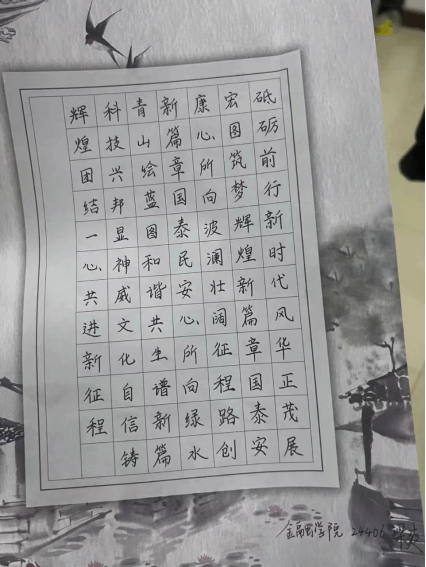 砥砺前行新时代风华正茂展
宏图筑梦辉煌新篇章国泰安
康心所向波澜壮阔征程路创
新篇章国泰民安心所向绿水
青山绘蓝图和谐共生谱新篇
科技兴邦显神威文化自信铸
辉煌团结一心共进新征程
金融学院 24406